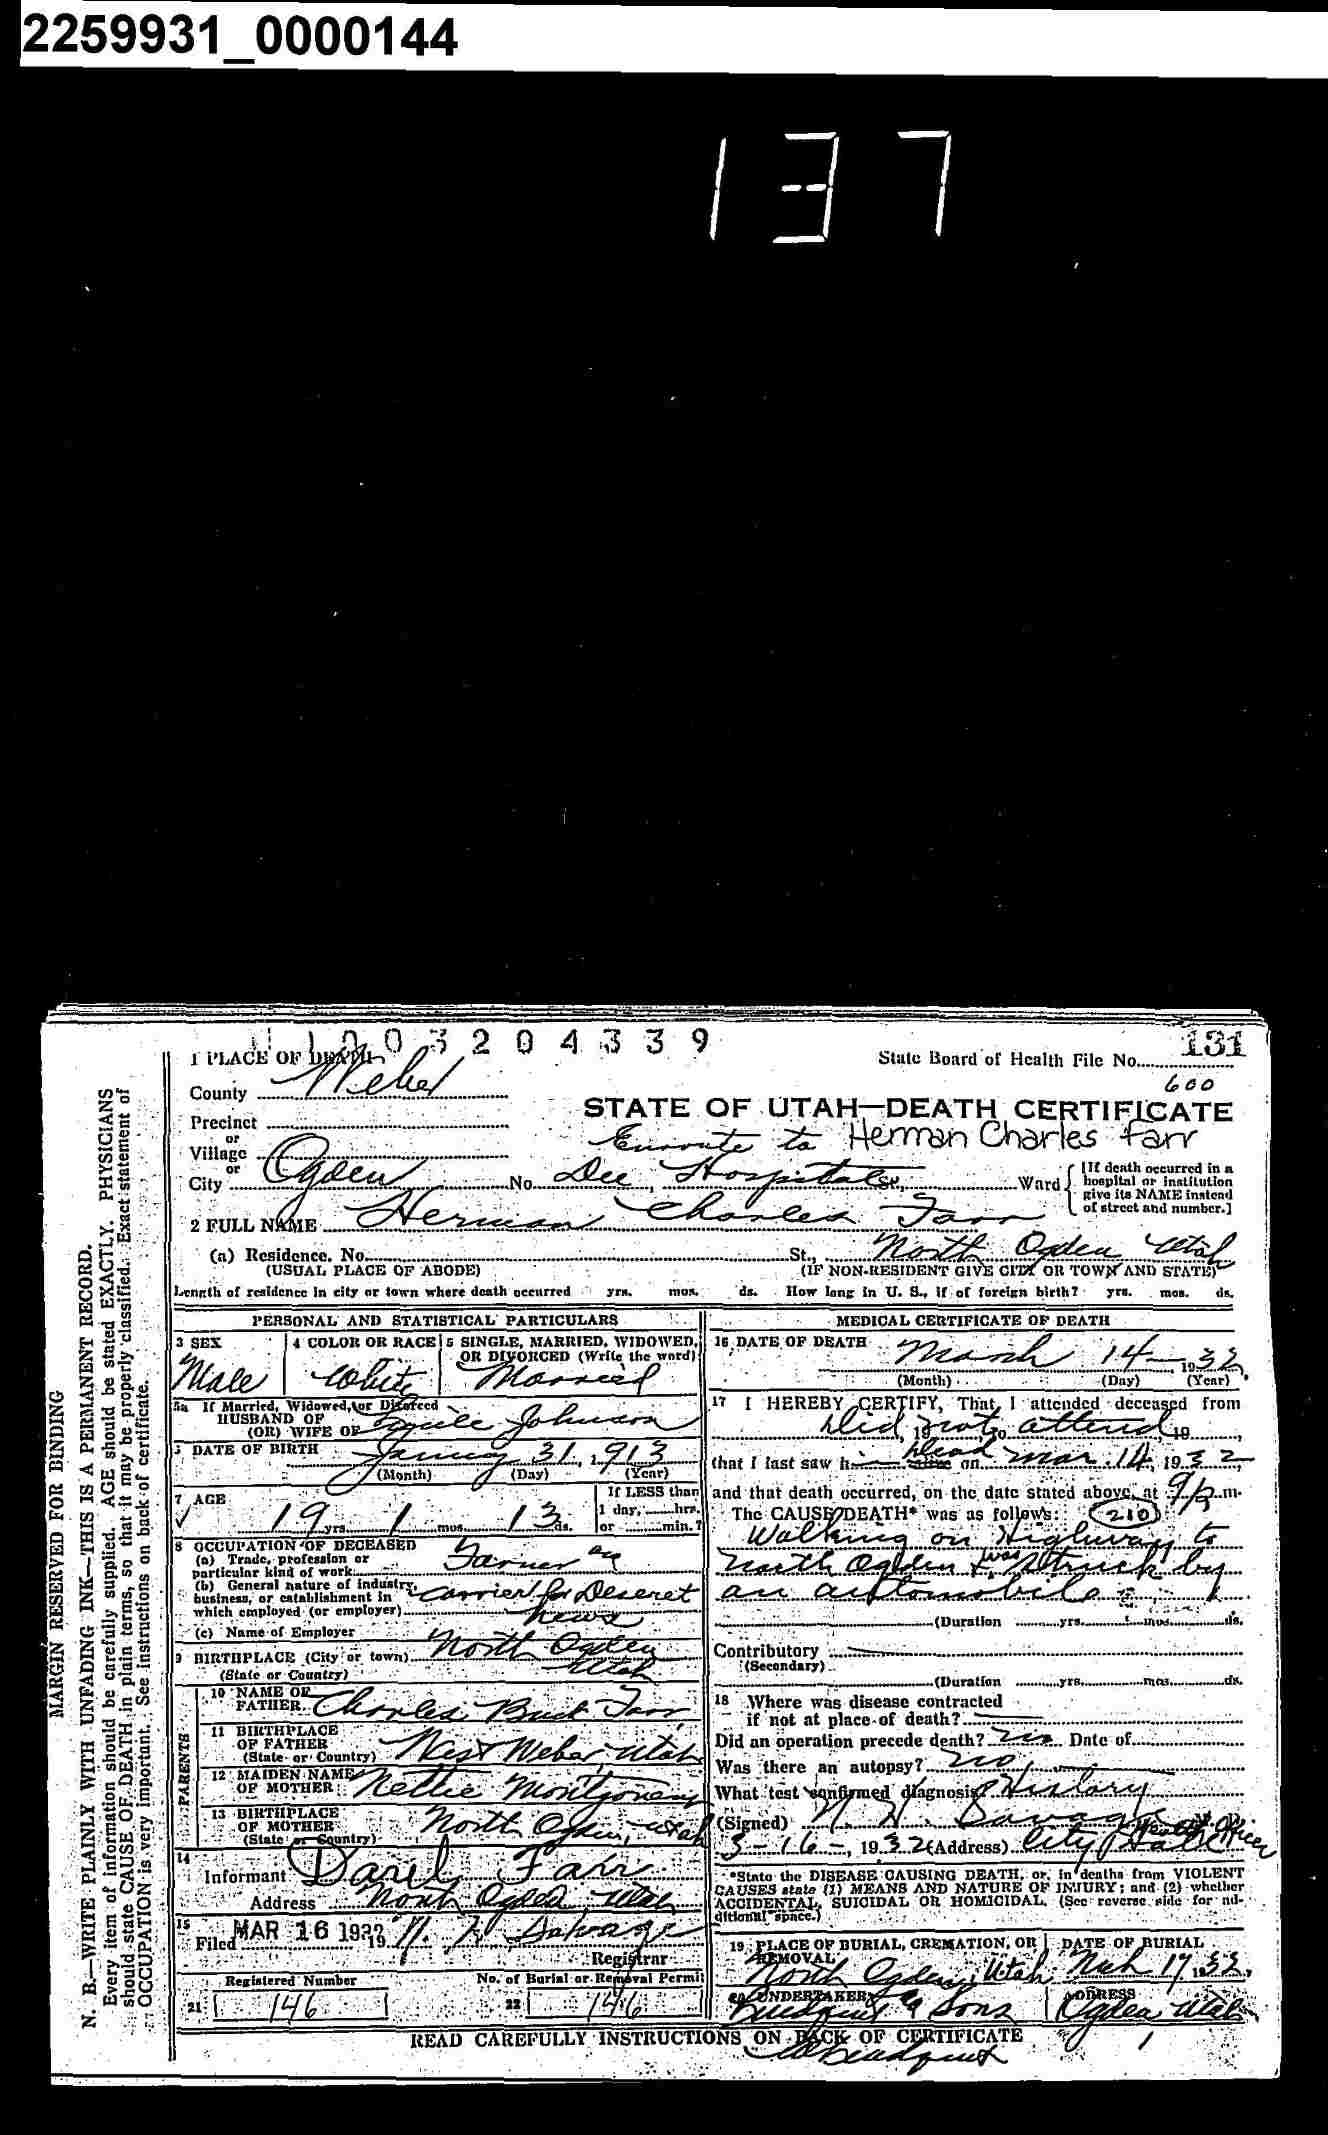 2259931_0000144
137
1003204339
1 PLACE OF DEATH
State Board of Health File No. 131
County Weber
600
STATE OF UTAH—DEATH CERTIFICATE
Precinct
or
Village
Enroute to Herman Charles Farr
or
City Ogden No. Dee Hospital St., Ward
[If death occurred in a hospital or institution give its NAME instead of street and number.]
2 FULL NAME Herman Charles Farr
(a) Residence. No. St., North Ogden Utah
(USUAL PLACE OF ABODE) (IF NON-RESIDENT GIVE CITY OR TOWN AND STATE)
Length of residence in city or town where death occurred yrs. mos. ds. How long in U. S., if of foreign birth? yrs. mos. ds.
PERSONAL AND STATISTICAL PARTICULARS
3 SEX Male
4 COLOR OR RACE White
5 SINGLE, MARRIED, WIDOWED, OR DIVORCED (Write the word) Married
5a If Married, Widowed, or Divorced
HUSBAND OF
(OR) WIFE OF Johnson
DATE OF BIRTH January 31, 1913
(Month) (Day) (Year)
7 AGE 19 yrs. 1 mos. 13 ds.
If LESS than 1 day, hrs. or min.?
8 OCCUPATION OF DECEASED
(a) Trade, profession or particular kind of work Farmer
(b) General nature of industry, business, or establishment in which employed (or employer) Carrier for Deseret News
(c) Name of Employer
9 BIRTHPLACE (City or town) North Ogden
(State or Country) Utah
PARENTS
10 NAME OF FATHER Charles Farr
11 BIRTHPLACE OF FATHER (State or Country) West Weber, Utah
12 MAIDEN NAME OF MOTHER Nellie Montgomery
13 BIRTHPLACE OF MOTHER (State or Country) North Ogden, Utah
14 Informant Farr
Address North Ogden Utah
15 Filed MAR 16 1932 19 Savage
Registrar
Registered Number
21 146
No. of Burial or Removal Permit
22 146
MEDICAL CERTIFICATE OF DEATH
16 DATE OF DEATH March 14 1932
(Month) (Day) (Year)
17 I HEREBY CERTIFY, That I attended deceased from
Did, 19 not to attend 19
that I last saw h alive dead on Mar. 14, 1932
and that death occurred, on the date stated above, at 9 m.
The CAUSE OF DEATH* was as follows: 210
Walking on Highway to
North Ogden & was struck by
an automobile
(Duration yrs. mos. ds.
Contributory
(Secondary)
(Duration yrs. mos. ds.
18 Where was disease contracted
if not at place of death?
Did an operation precede death? no Date of
Was there an autopsy? no
What test confirmed diagnosis? History
(Signed) N. H. Savage
Health Officer
3-16-, 1932 (Address) City Hall
*State the DISEASE CAUSING DEATH, or, in deaths from VIOLENT
CAUSES state (1) MEANS AND NATURE OF INJURY; and (2) whether
ACCIDENTAL, SUICIDAL OR HOMICIDAL. (See reverse side for ad-
ditional space.)
19 PLACE OF BURIAL, CREMATION, OR REMOVAL North Ogden, Utah
DATE OF BURIAL Mch 17 1932
20 UNDERTAKER Lindquist & Sons
ADDRESS Ogden Utah
READ CAREFULLY INSTRUCTIONS ON BACK OF CERTIFICATE
Lindquist
MARGIN RESERVED FOR BINDING
N. B.—WRITE PLAINLY WITH UNFADING INK—THIS IS A PERMANENT RECORD.
Every item of information should be carefully supplied. AGE should be stated EXACTLY. PHYSICIANS
should state CAUSE OF DEATH in plain terms, so that it may be properly classified. Exact statement of
OCCUPATION is very important. See instructions on back of certificate.